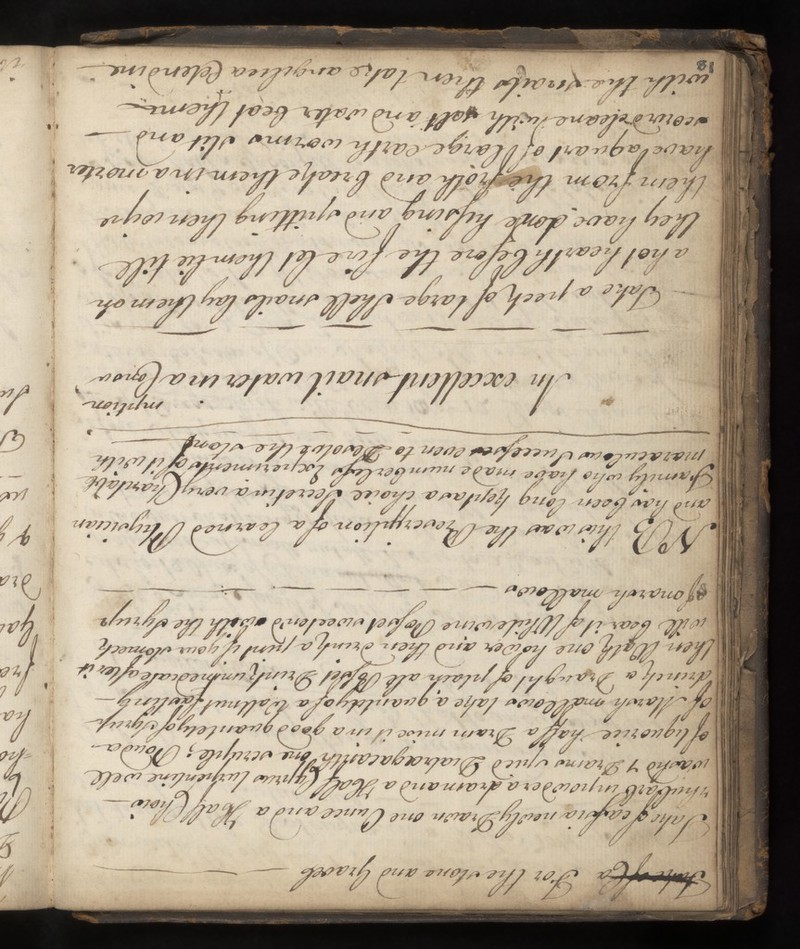 Take of Ca For the stone and Gravel
Take of cassia newly Drawn one Ounce and a Half Choise
rhubarb in powder a dram and a Half Cyprus turpentine well
washd 7 Drams spice Diatragacanth one scruple; Powder
of liquorice half a Dram mix it in a good quantety of syrup
of Marsh mallows take a quantity of a Wallnut fasting
drink a Draught of plain ale Posset Drink immediately after it
then Walk one hower and then drink a pint if your stomech
will bear it of White wine Posset sweetend with the syrup
of marsh mallows
NB this was the Prescription of a learned Physician
and has been long kept as a choice Secret in a very Charitable
Family who have made numberless Experiments of it with
maraculous Success even to Desolve the stone
An excellent snail water in a Consu
mption
Take a peck of large shell snails lay them on
a hot hearth before the fire let them lie till
they have done hysing and spitting then wipe
them from the froth and break them in a morter
have a quart of large earth worms slit and
scowrd cleane with salt and water beat them
with the snails then take angelica Celendine
18